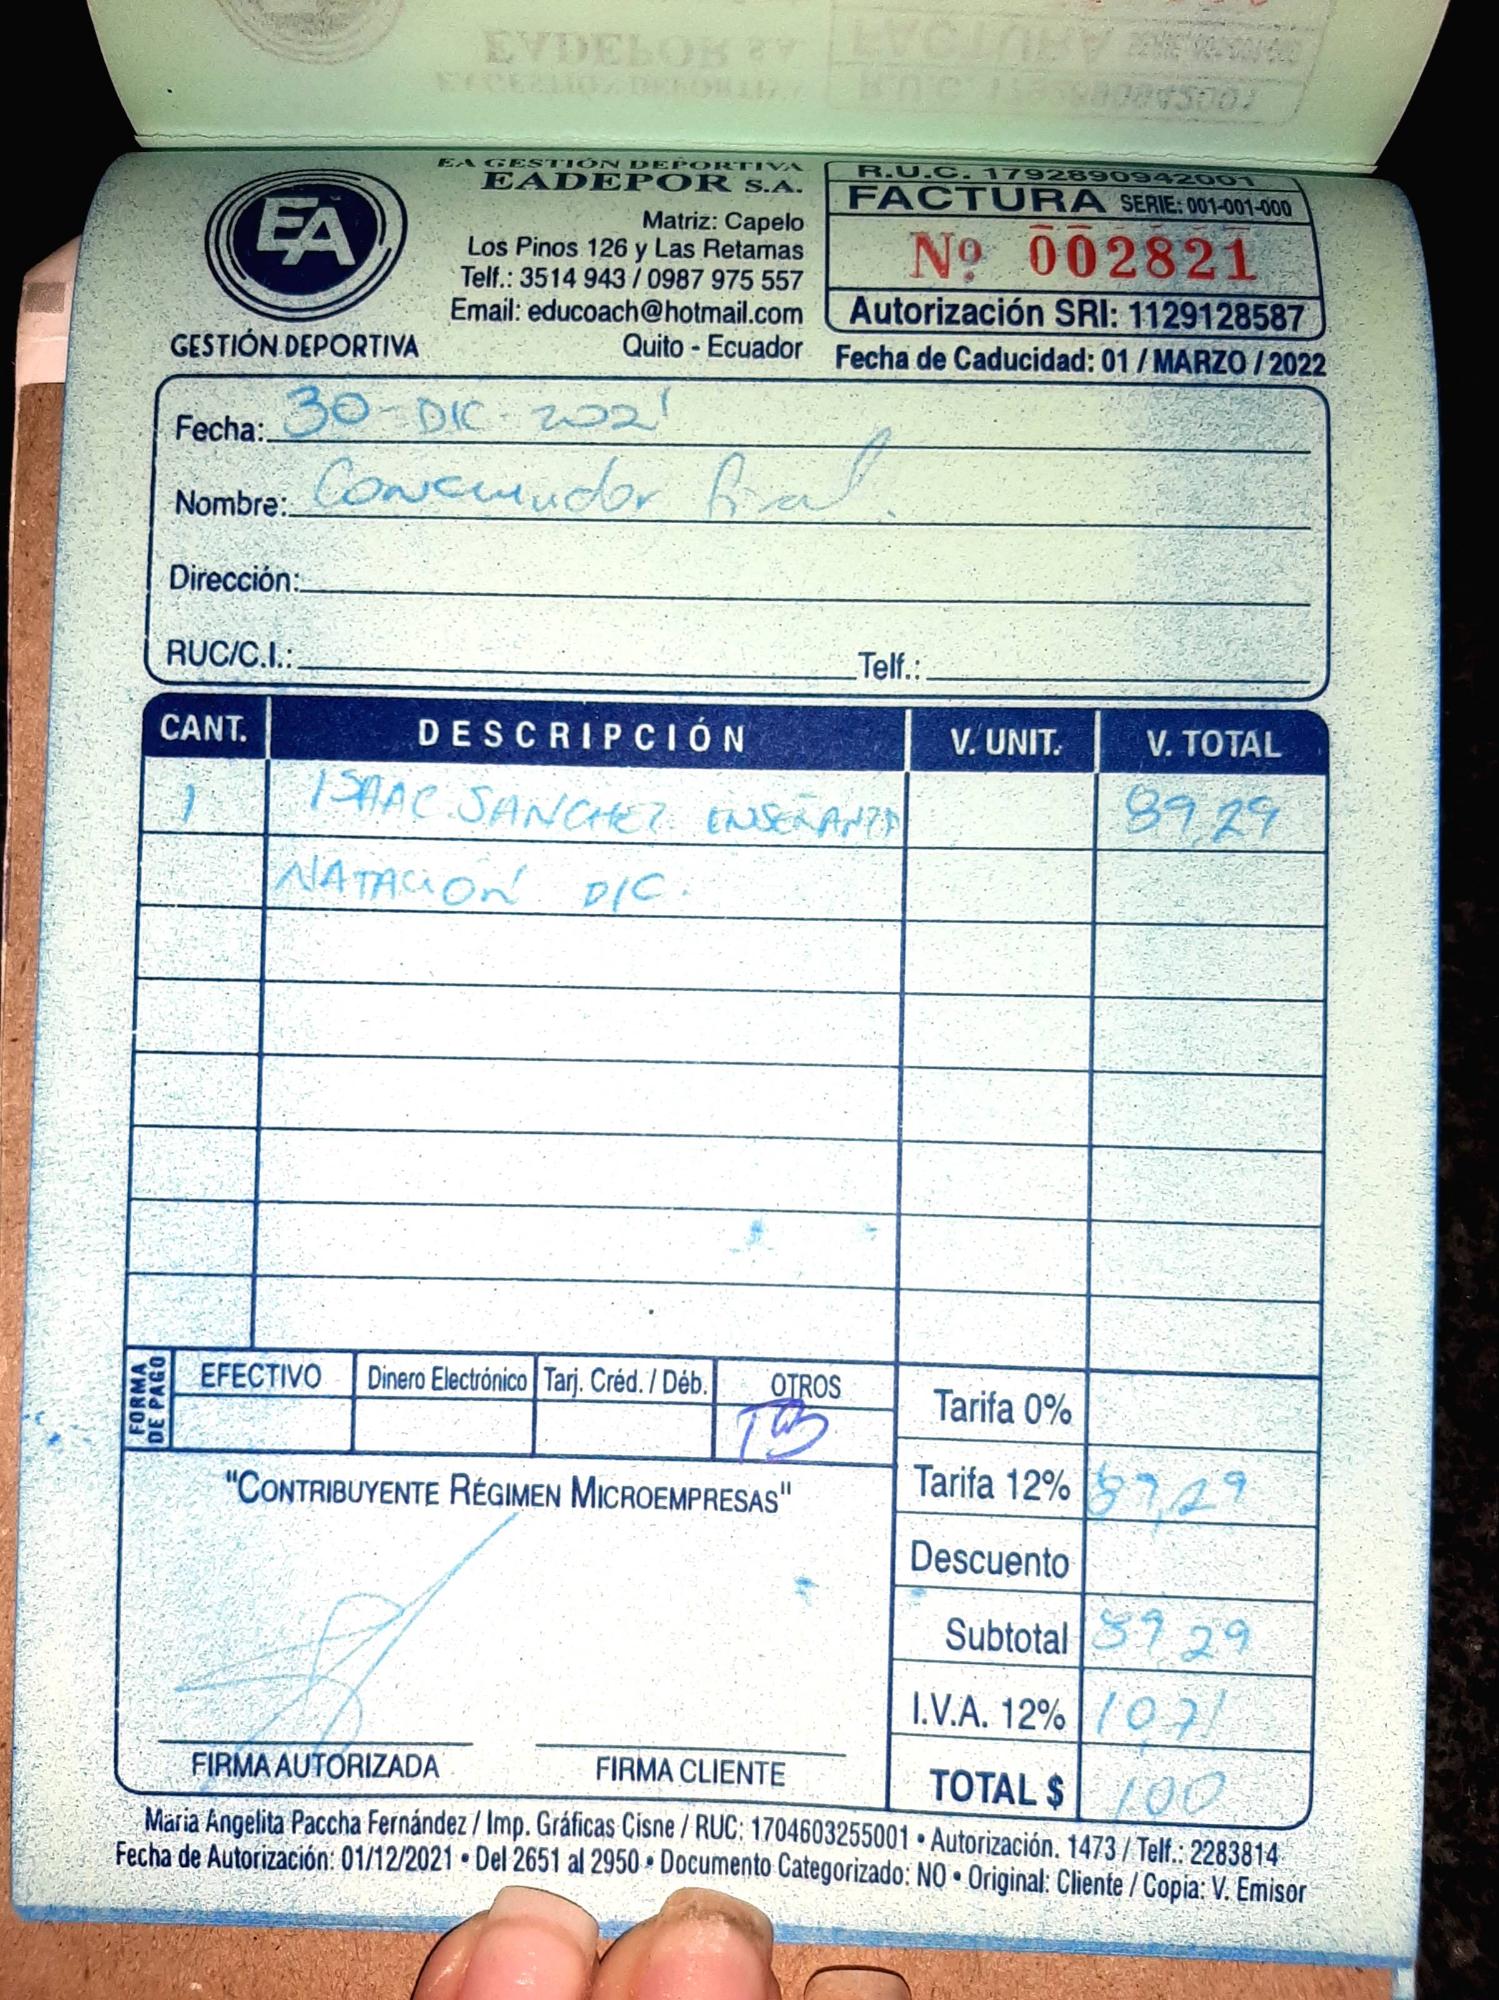 EA GESTIÓN DEPORTIVA
EADEPOR S.A.
Matriz: Capelo
Los Pinos 126 y Las Retamas
Telf.: 3514 943 / 0987 975 557
Email: educoach@hotmail.com
Quito - Ecuador
EA
GESTIÓN DEPORTIVA
R.U.C. 1792890942001
FACTURA SERIE: 001-001-000
Nº 002821
Autorización SRI: 1129128587
Fecha de Caducidad: 01 / MARZO / 2022
Fecha: 30-DIC-2021
Nombre: Consumidor final.
Dirección:
RUC/C.I.: Telf.:
CANT. DESCRIPCIÓN V. UNIT. V. TOTAL
1 ISAAC SANCHEZ ENSEÑANZA 89,29
NATACIÓN DIC.
FORMA DE PAGO
EFECTIVO Dinero Electrónico Tarj. Créd. / Déb. OTROS
Tarifa 0%
"CONTRIBUYENTE RÉGIMEN MICROEMPRESAS"
Tarifa 12% 89,29
Descuento
Subtotal 89,29
I.V.A. 12% 10,71
TOTAL $ 100
FIRMA AUTORIZADA FIRMA CLIENTE
Maria Angelita Paccha Fernández / Imp. Gráficas Cisne / RUC: 1704603255001 • Autorización. 1473 / Telf.: 2283814
Fecha de Autorización: 01/12/2021 • Del 2651 al 2950 • Documento Categorizado: NO • Original: Cliente / Copia: V. Emisor